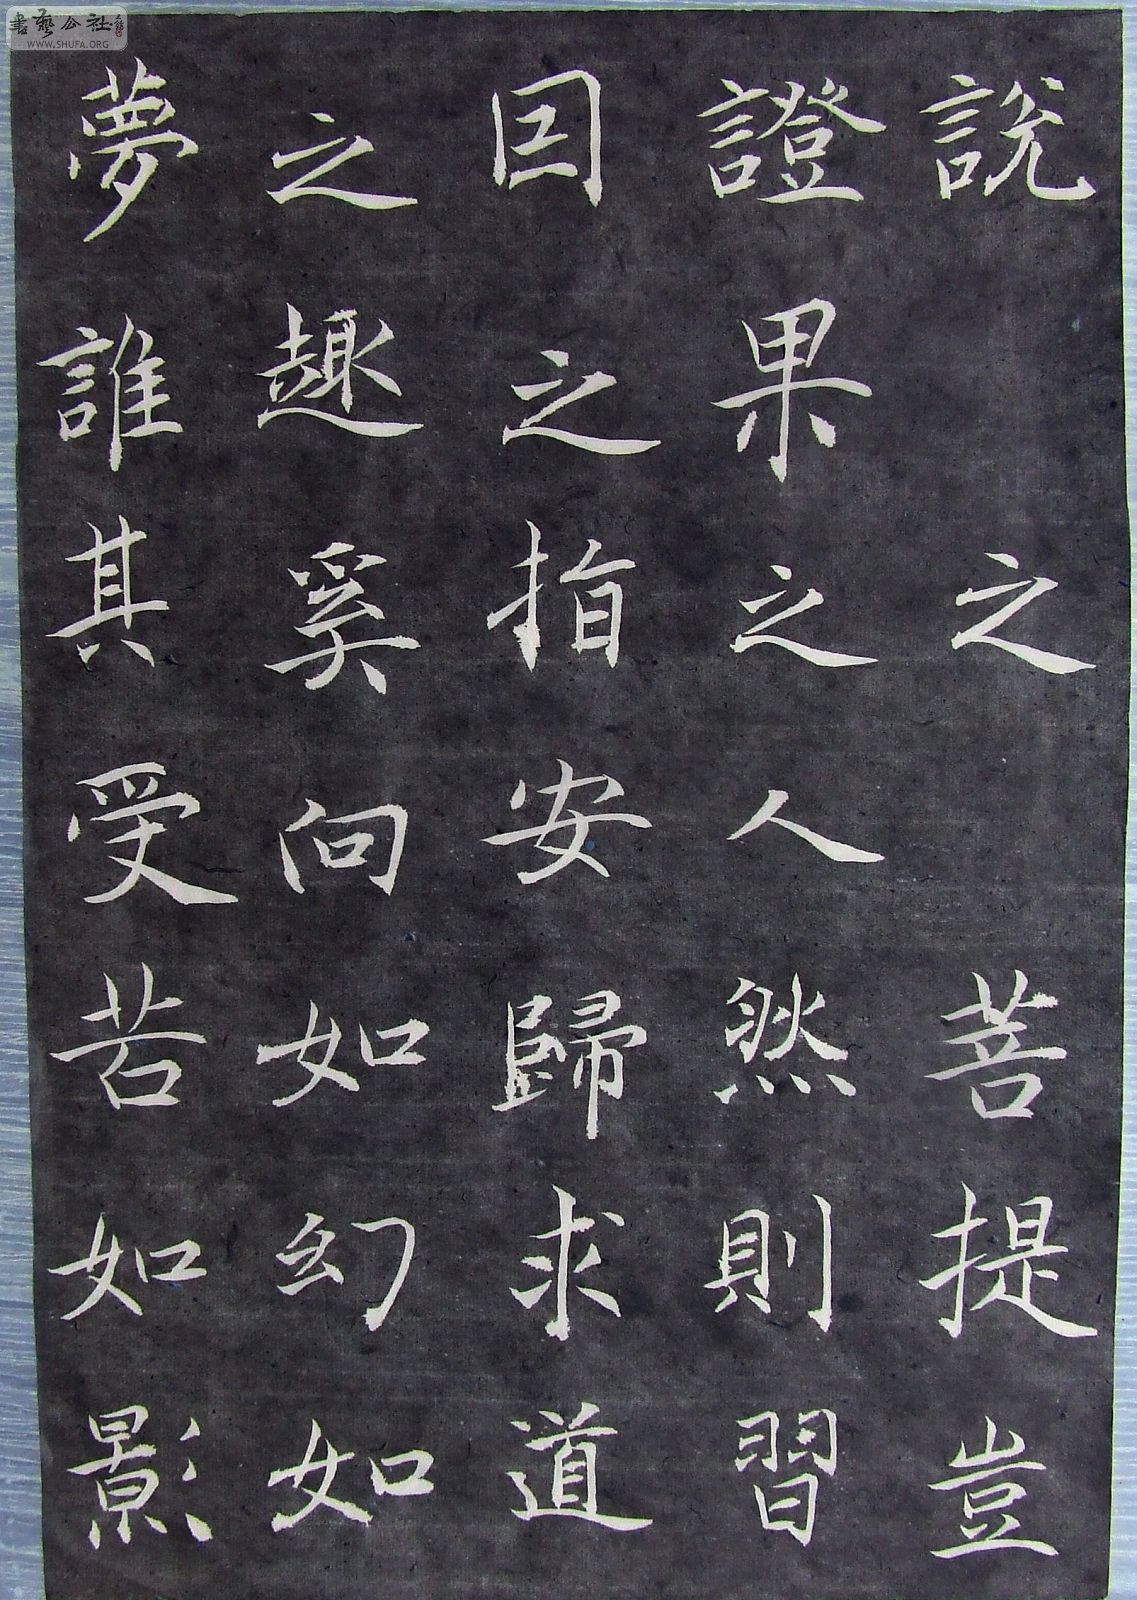 說之菩提豈
證果之人然則習
因之指安歸求道
之趣奚向如幻如
夢誰其受苦如影
書藝公社
WWW.SHUFA.ORG